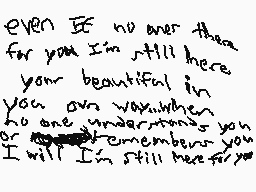 even If no ones there
for you I'm still here
your beautiful in
you own way..when
no one understands you
or remembers you
I will I'm still here for you